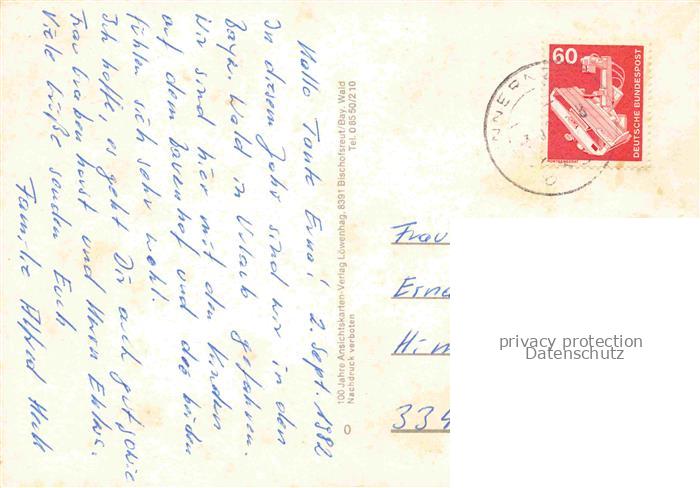 2. Sept. 1982
Hallo Tante Erna!
In diesem Jahr sind wir in den
Bayr. Wald in Urlaub gefahren.
Wir sind hier mit den Kindern
auf dem Bauernhof und die beiden
fühlen sich sehr wohl.
Ich hoffe, es geht Dir auch gut sowie
Frau
Viele Grüße senden Euch
Familie Alfred
100 Jahre Ansichtskarten-Verlag Löwenhag, 8391 Bischofsreut/Bay. Wald
Nachdruck verboten Tel. 0 85 50/210
0
60
DEUTSCHE BUNDESPOST
RÖNTGENGERÄT
Frau
Erna
334
privacy protection
Datenschutz